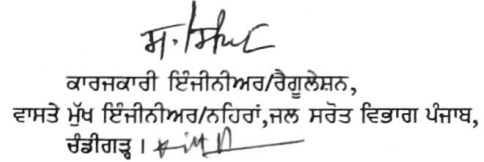 ਕਾਰਜਕਾਰੀ ਇੰਜੀਨੀਅਰ/ਰੈਗੂਲੇਸ਼ਨ,
ਵਾਸਤੇ ਮੁੱਖ ਇੰਜੀਨੀਅਰ/ਨਹਿਰਾਂ,ਜਲ ਸਰੋਤ ਵਿਭਾਗ ਪੰਜਾਬ,
ਚੰਡੀਗੜ੍ਹ।